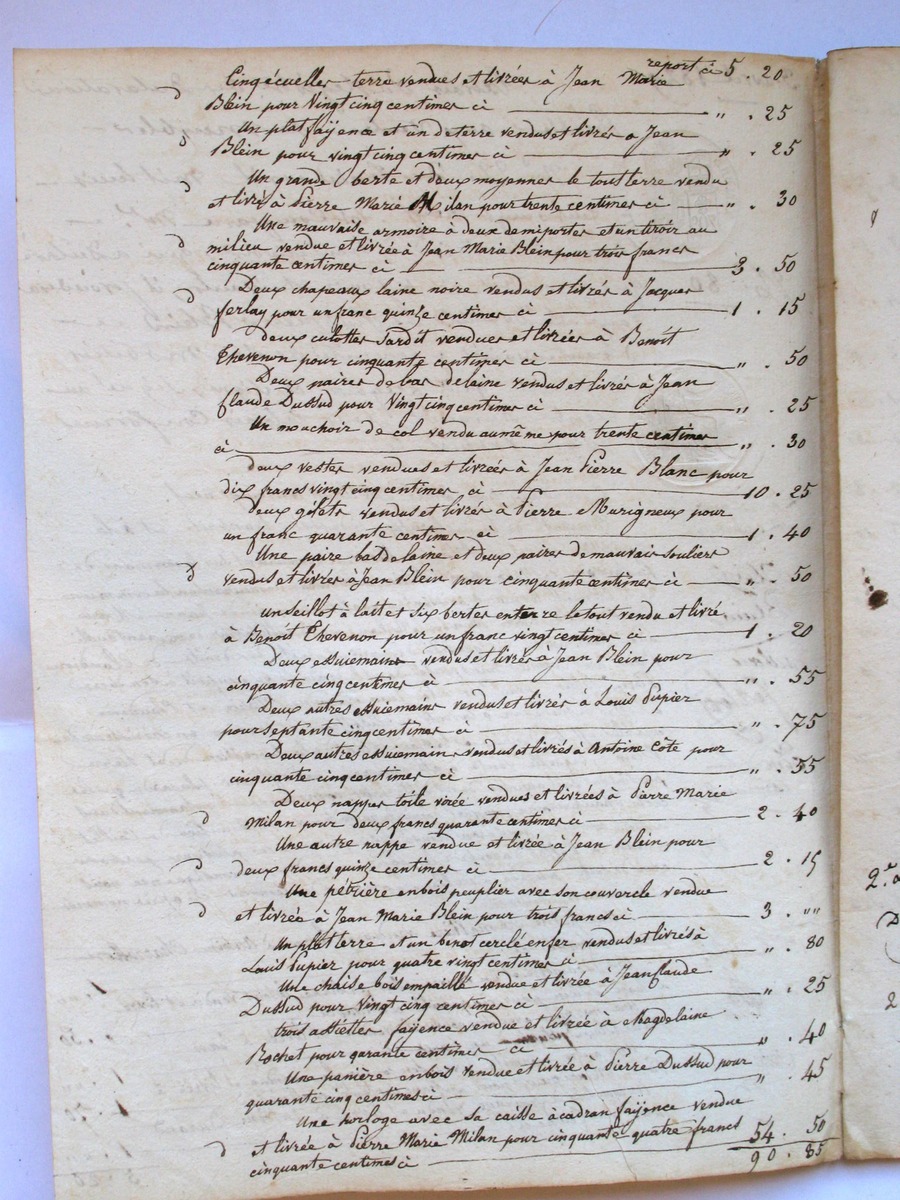 report ci 5 . 20
Cinq écuelles terre vendues et livrées à Jean Marie
Blein pour Vingt cinq centimes ci „ . 25
Un plat fayence et un de terre vendus et livrés à Jean
Blein pour vingt cinq centimes ci „ . 25
Un grande berte et deux moyennes le tout terre vendu
et livré à Pierre Marie Milan pour trente centimes ci „ . 30
Une mauvaise armoire à deux demi portes et un tiroir au
milieu vendue et livrée à Jean Marie Blein pour trois francs
cinquante centimes ci 3 . 50
Deux chapeaux laine noire vendus et livrés à Jacques
ferlay pour un franc quinze centimes ci 1 . 15
deux culottes Sardit vendues et livrées à Benoît
Thevenon pour cinquante centimes ci „ . 50
Deux paires de bas de laine vendus et livrés à Jean
Claude Dussud pour Vingt cinq centimes ci „ . 25
Un mouchoir de col vendu au même pour trente centimes
ci „ . 30
deux vestes vendues et livrées à Jean Pierre Blanc pour
dix francs vingt cinq centimes ci 10 . 25
deux gilets vendus et livrés à Pierre Murigneux pour
un franc quarante centimes ci 1 . 40
Une paire bas de laine et deux paires de mauvais souliers
vendus et livrés à Jean Blein pour cinquante centimes ci „ . 50
un seillot à lait et six bertes en terre le tout vendu et livré
à Benoît Thevenon pour un franc vingt centimes ci 1 . 20
Deux essuiemains vendus et livrés à Jean Blein pour
cinquante cinq centimes ci „ . 55
Deux autres essuiemains vendus et livrés à Louis Pupier
pour septante cinq centimes ci „ . 75
Deux autres essuiemain vendus et livrés à Antoine Côte pour
cinquante cinq centimes ci „ . 55
Deux nappes toile virée vendues et livrées à Pierre Marie
Milan pour deux francs quarante centimes ci 2 . 40
Une autre nappe vendue et livrée à Jean Blein pour
deux francs quinze centimes ci 2 . 15
Une pétrière en bois peuplier avec son couvercle vendue
et livrée à Jean Marie Blein pour trois francs ci 3 . „„
Un plat terre et un benot cerclé en fer vendus et livrés à
Louis Pupier pour quatre vingt centimes ci „ . 80
Une chaise bois empaillé vendue et livrée à Jean Claude
Dussud pour Vingt cinq centimes ci „ . 25
trois assiettes fayence vendue et livrée à Magdelaine
Rochet pour quarante centimes ci „ . 40
Une panière en bois vendue et livrée à Pierre Dussud pour
quarante cinq centimes ci „ . 45
Une horloge avec sa caisse à cadran fayence vendue
et livrée à Pierre Marie Milan pour cinquante quatre francs
cinquante centimes ci 54 . 50
90 . 85